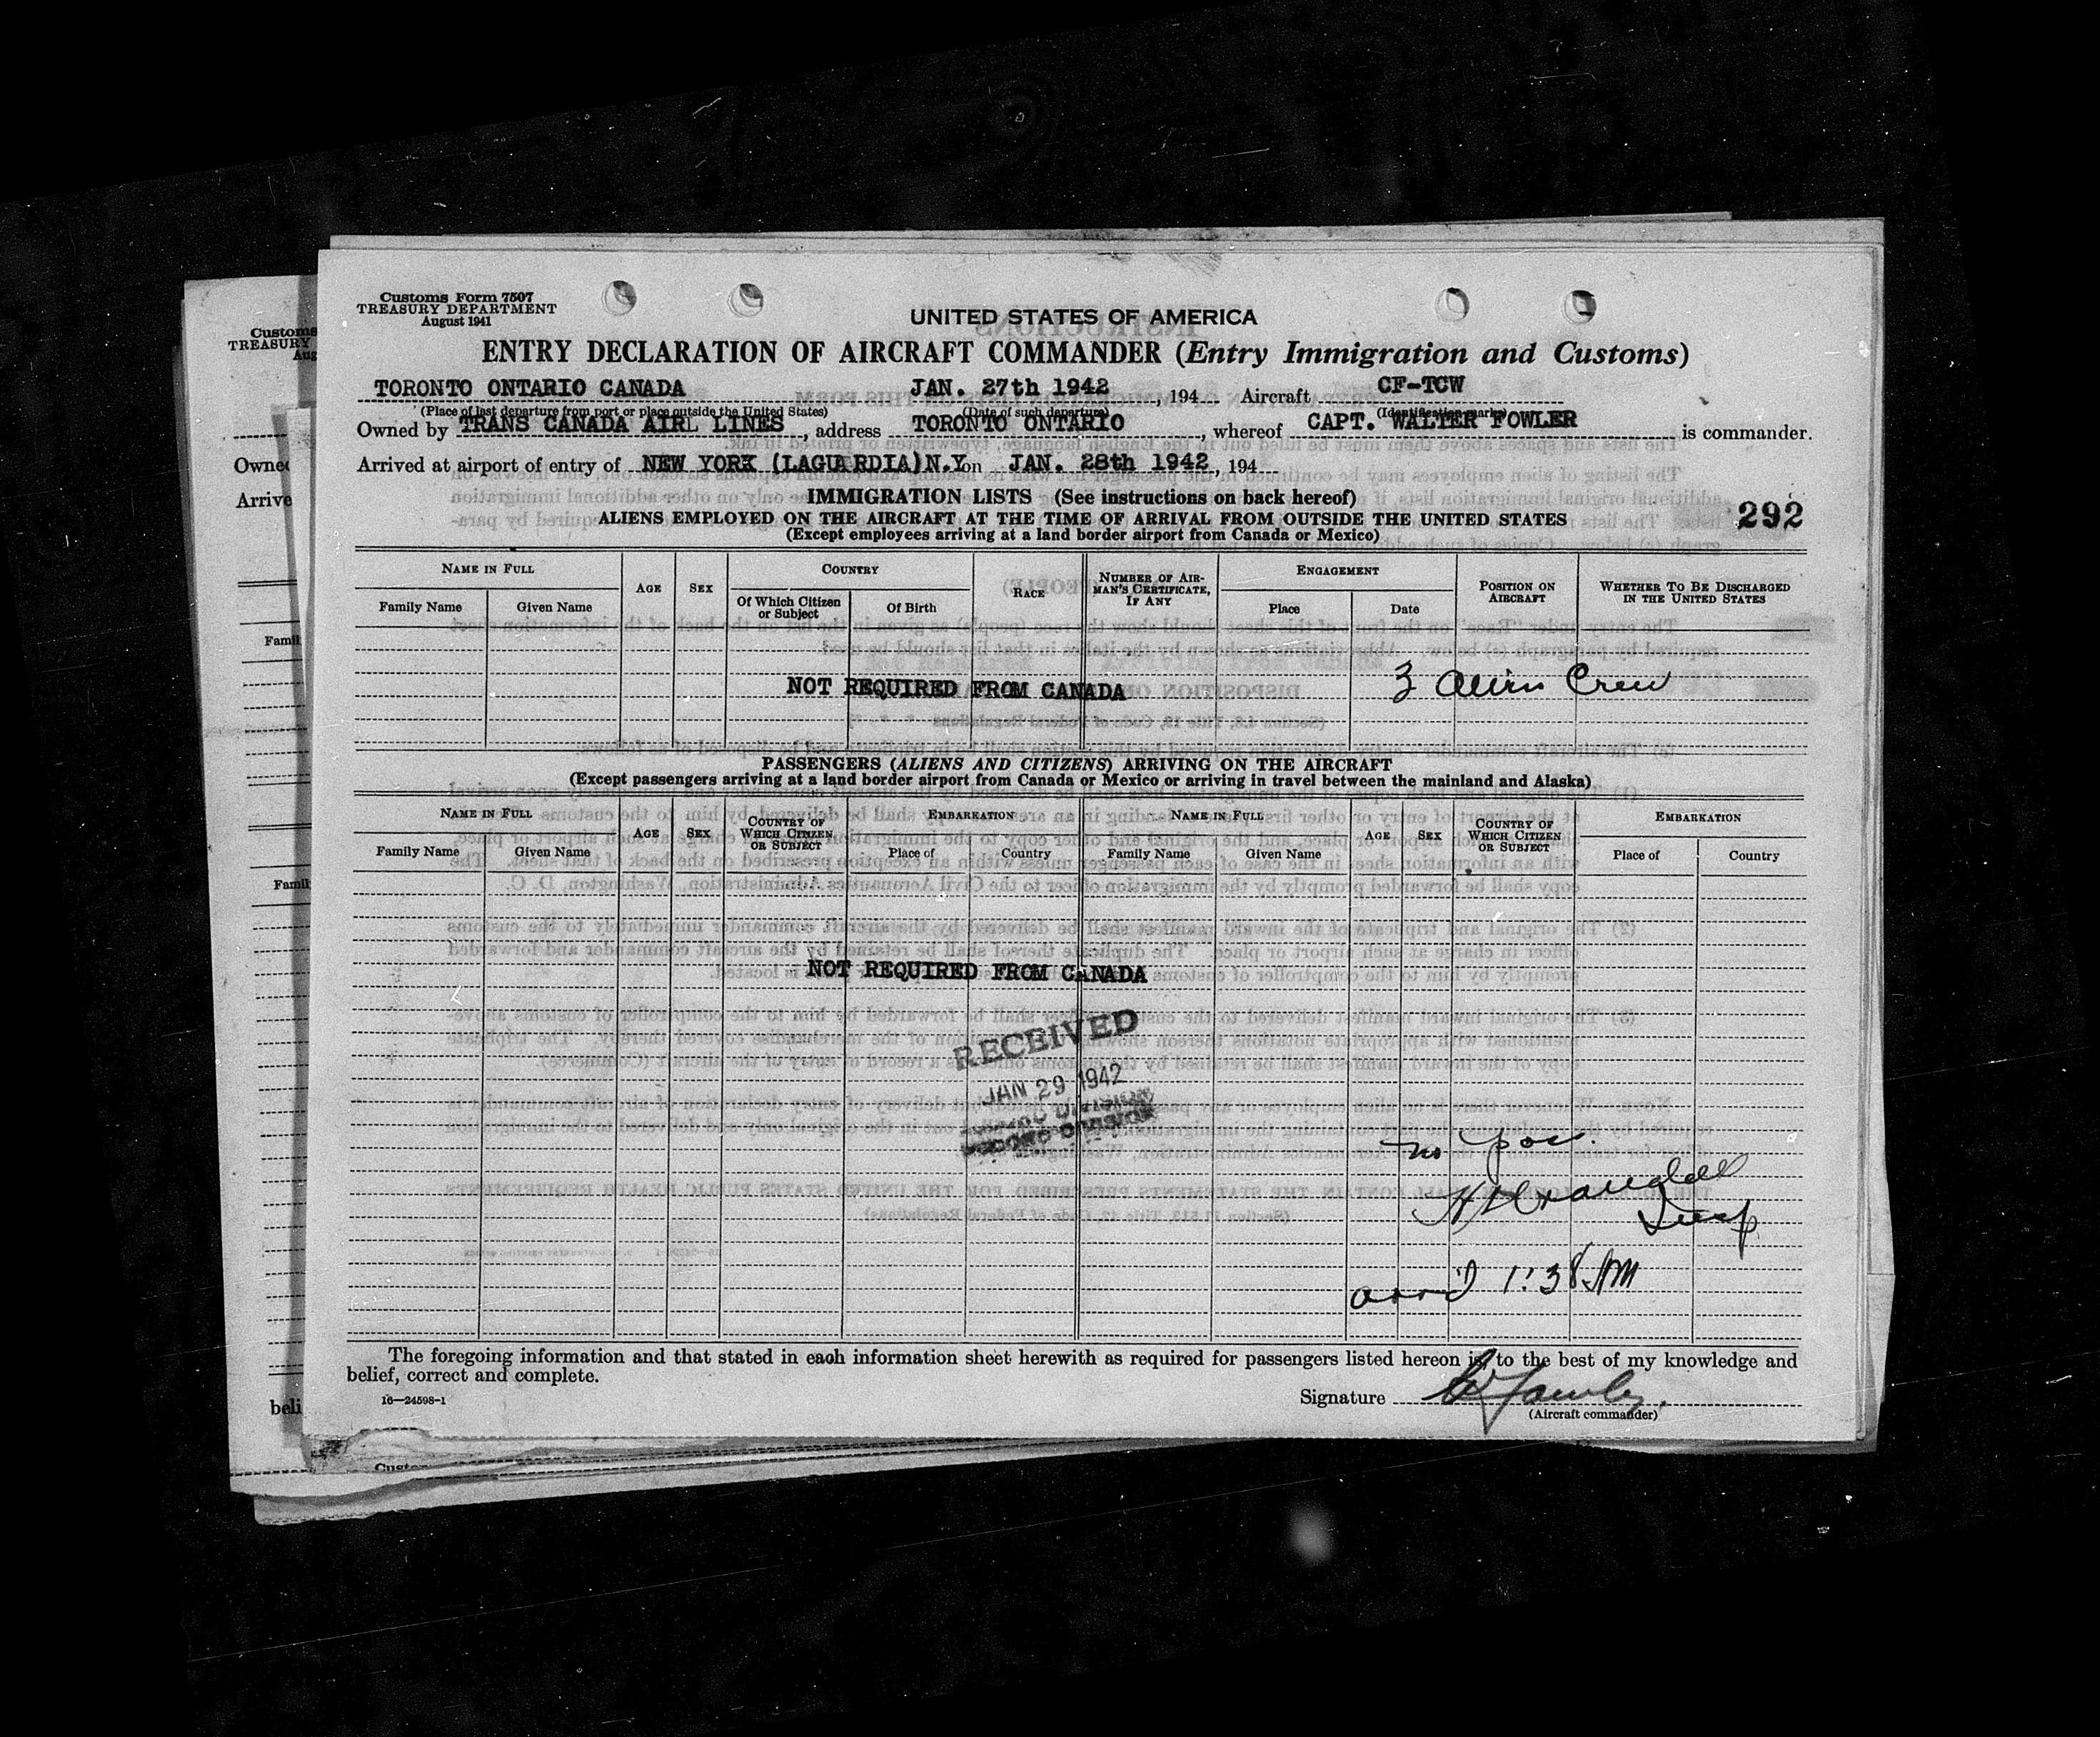 Customs Form 7507
TREASURY DEPARTMENT
August 1941
UNITED STATES OF AMERICA
ENTRY DECLARATION OF AIRCRAFT COMMANDER (Entry Immigration and Customs)
TORONTO ONTARIO CANADA JAN. 27th 1942, 194 Aircraft CF-TCW
(Place of last departure from port or place outside the United States) (Date of such departure) (Identification marks)
Owned by TRANS CANADA AIR LINES, address TORONTO ONTARIO, whereof CAPT. WALTER FOWLER is commander.
Arrived at airport of entry of NEW YORK (LAGUARDIA) N.Y. on JAN. 28th 1942, 194
IMMIGRATION LISTS (See instructions on back hereof)
292
ALIENS EMPLOYED ON THE AIRCRAFT AT THE TIME OF ARRIVAL FROM OUTSIDE THE UNITED STATES
(Except employees arriving at a land border airport from Canada or Mexico)
NAME IN FULL AGE SEX COUNTRY RACE NUMBER OF AIRMAN'S CERTIFICATE, IF ANY ENGAGEMENT POSITION ON AIRCRAFT WHETHER TO BE DISCHARGED IN THE UNITED STATES
Family Name Given Name Of Which Citizen or Subject Of Birth Place Date
NOT REQUIRED FROM CANADA 3 Alien Crew
PASSENGERS (ALIENS AND CITIZENS) ARRIVING ON THE AIRCRAFT
(Except passengers arriving at a land border airport from Canada or Mexico or arriving in travel between the mainland and Alaska)
NAME IN FULL AGE SEX COUNTRY OF WHICH CITIZEN OR SUBJECT EMBARKATION NAME IN FULL AGE SEX COUNTRY OF WHICH CITIZEN OR SUBJECT EMBARKATION
Family Name Given Name Place of Country Family Name Given Name Place of Country
NOT REQUIRED FROM CANADA
RECEIVED
JAN 29 1942
RECORD DIVISION
no
Insp
arr'd 1:38 AM
The foregoing information and that stated in each information sheet herewith as required for passengers listed hereon is, to the best of my knowledge and
belief, correct and complete.
16—24598-1
Signature W Fowler.
(Aircraft commander)
Customs
TREASURY
Aug
Owne
Arrive
Famil
Famil
beli
Custo